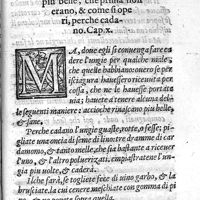 più belle, che prima non
erano, & come si ope
ri, perche cada-
no. Cap. x.
MA, doue egli si conuenga fare ca
dere l'ungie per qualche male,
che quelle habbiano: come se ui
nascesse sotto alcuna cosa no-
ciua, che non le lascasse portar
uia; hauete a tenere alcuno del-
le seguenti maniere: acciochè rinascano belle,
& sane.
Perche cadano l'ungie guaste, rotte, o fesse; pi-
gliate una oncia di seme di lino: tre dramme di car
damomo, & tanto mele, che sia bastante a riceuer
l'uno, & l'altro poluerizati, empiastrateue l'un-
gia più uolte, & caderà.
Ilche farà, se togliete fece di uino garbo, & la
bruciate, la cui cenere meschiate con gomma di pi